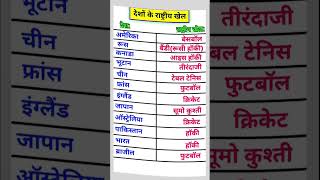 देशों के राष्ट्रीय खेल
देश राष्ट्रीय खेल
अमेरिका बेसबॉल
रूस बैंडी(रूसी हॉकी)
कनाडा आइस हॉकी
भूटान तीरंदाजी
चीन टेबल टेनिस
फ्रांस फुटबॉल
इंग्लैंड क्रिकेट
जापान सूमो कुश्ती
ऑस्ट्रेलिया क्रिकेट
पाकिस्तान हॉकी
भारत हॉकी
ब्राजील फुटबॉल
भूटान
चीन
फ्रांस
इंग्लैंड
जापान
तीरंदाजी
टेबल टेनिस
फुटबॉल
क्रिकेट
सूमो कुश्ती